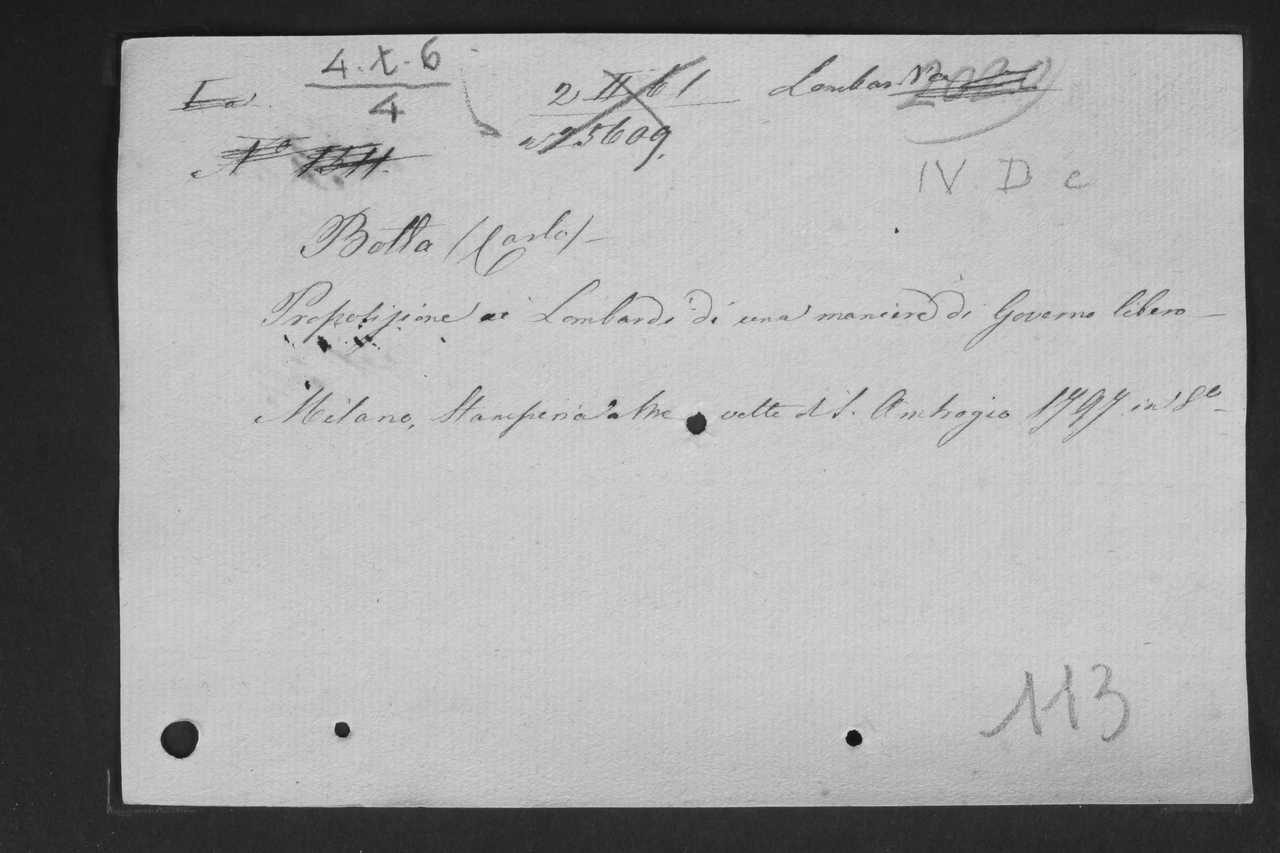 4.X.6
4
2 II 61
25609.
IV D c
Botta (Carlo) -
Proposizione ai Lombardi di una maniera di Governo libero -
Milano, Stamperia alle volte di S. Ambrogio 1797 in 8º -
113